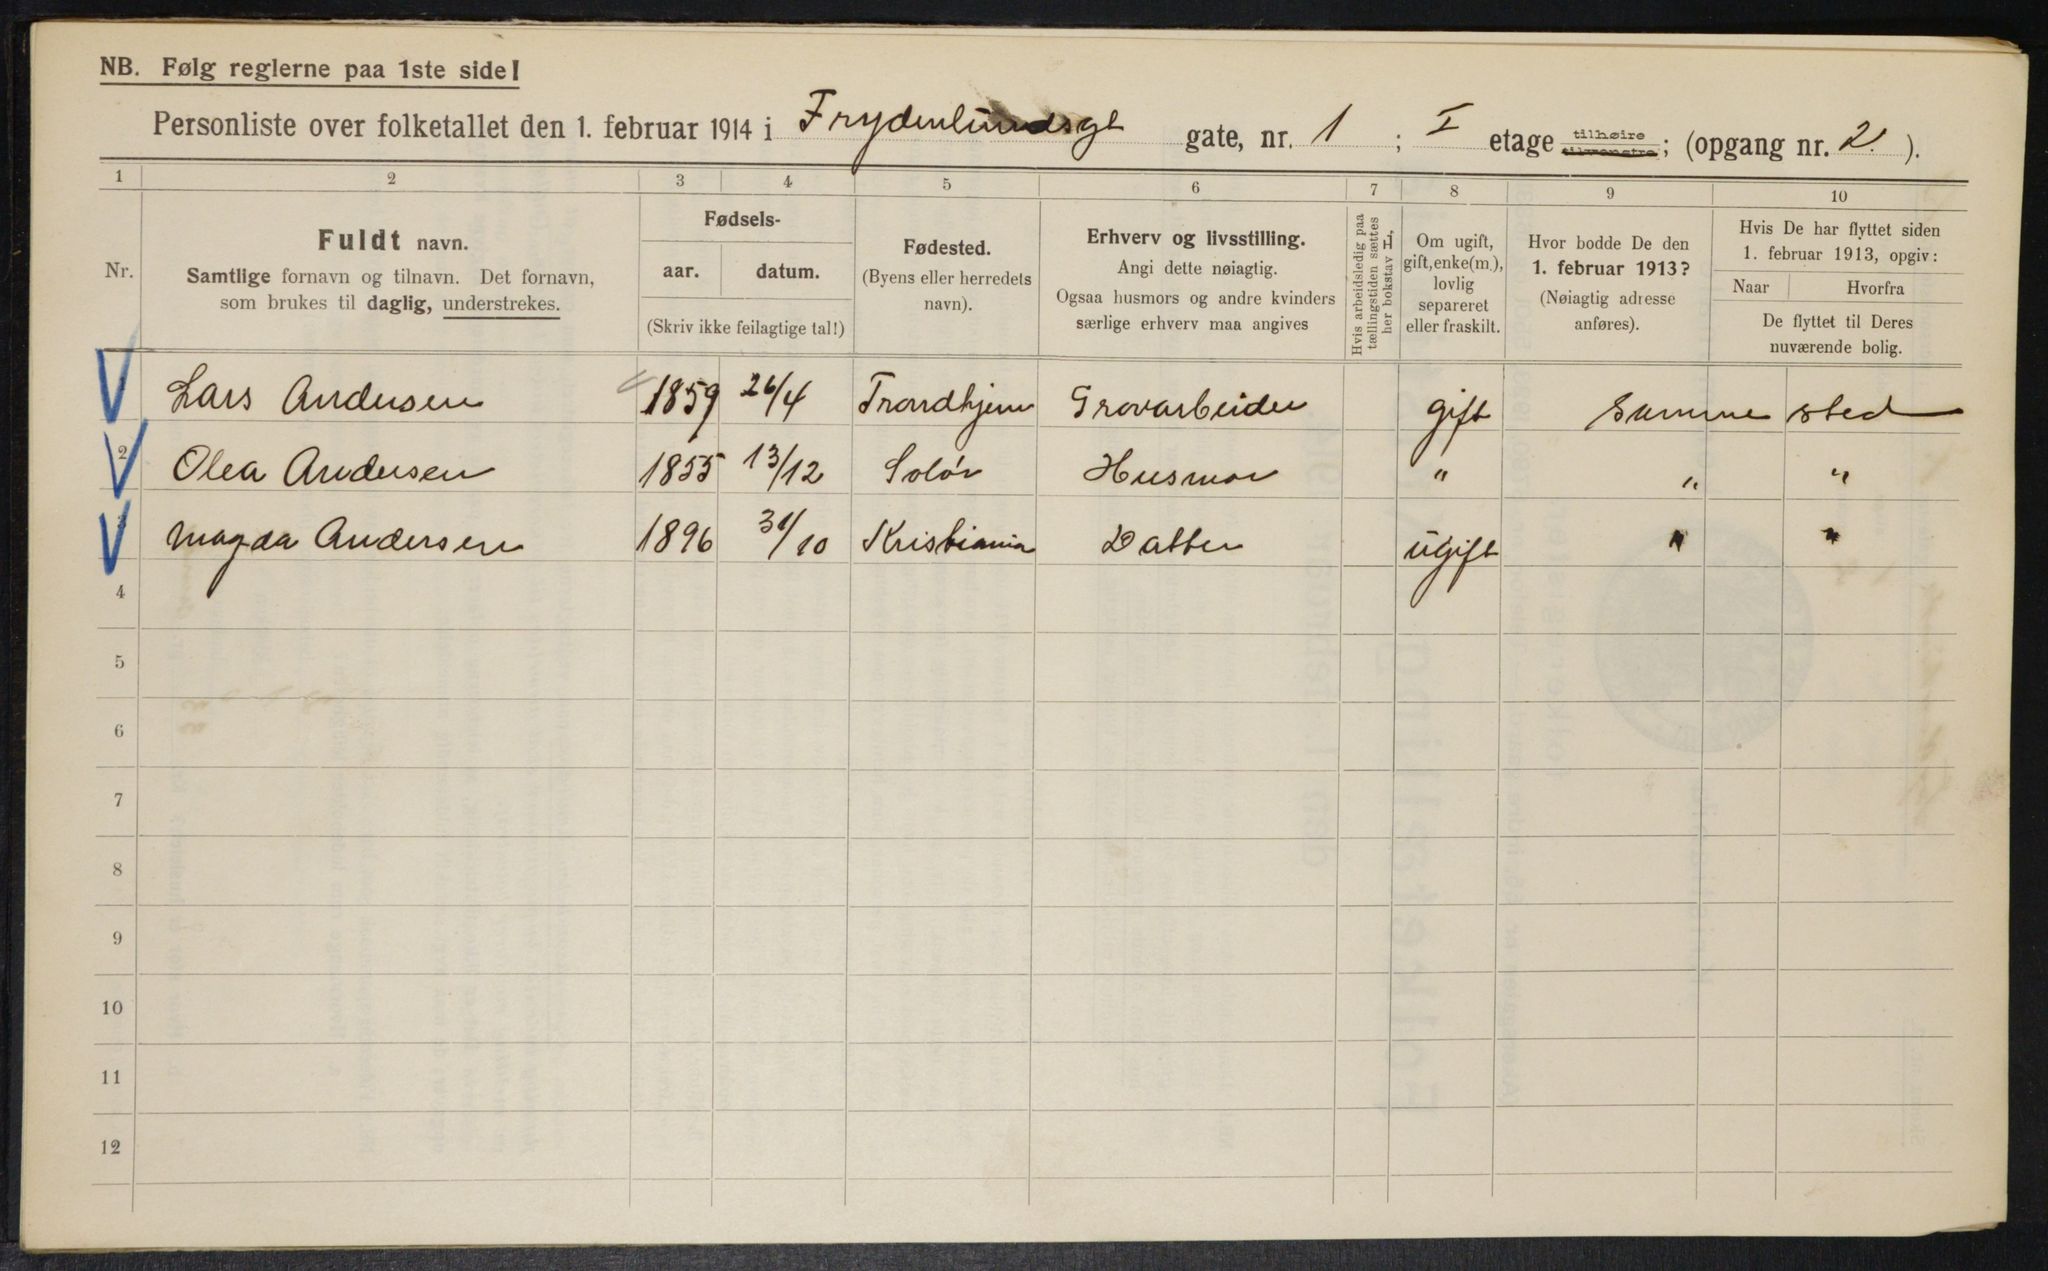 NB. Følg reglerne paa 1ste side!
Personliste over folketallet den 1. februar 1914 i Frydenlundsgt gate, nr. 1 ; I etage tilhøire tilvenstre; (opgang nr. 2.).
1 2 3 4 5 6 7 8 9 10
Nr.
Fuldt navn.
Samtlige fornavn og tilnavn. Det fornavn,
som brukes til daglig, understrekes.
Fødsels-
aar. datum.
(Skriv ikke feilagtige tal!)
Fødested.
(Byens eller herredets
navn).
Erhverv og livsstilling.
Angi dette nøiagtig.
Ogsaa husmors og andre kvinders
særlige erhverv maa angives
Hvis arbeidsledig paa
tællingstiden sættes
her bokstav L,
Om ugift,
gift, enke(m.),
lovlig
separeret
eller fraskilt.
Hvor bodde De den
1. februar 1913?
(Nøiagtig adresse
anføres).
Hvis De har flyttet siden
1. februar 1913, opgiv:
Naar Hvorfra
De flyttet til Deres
nuværende bolig.
Lars Andersen 1859 26/4 Trondhjem Grovarbeider gift Samme sted
2 Olea Andersen 1855 13/12 Solør Husmor " " "
3 Magda Andersen 1896 31/10 Kristiania Datter ugift " "
4
5
6
7
8
9
10
11
12